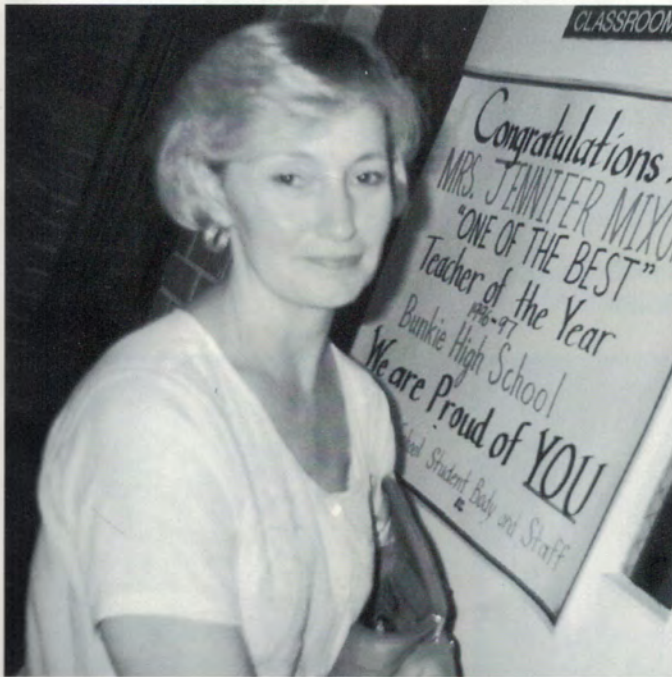 CLASSROOM
Congratulations
MRS. JENNIFER MIXO
"ONE OF THE BEST"
Teacher of the Year
1996-97
Bunkie High School
We are Proud of YOU
Student Body and Staff